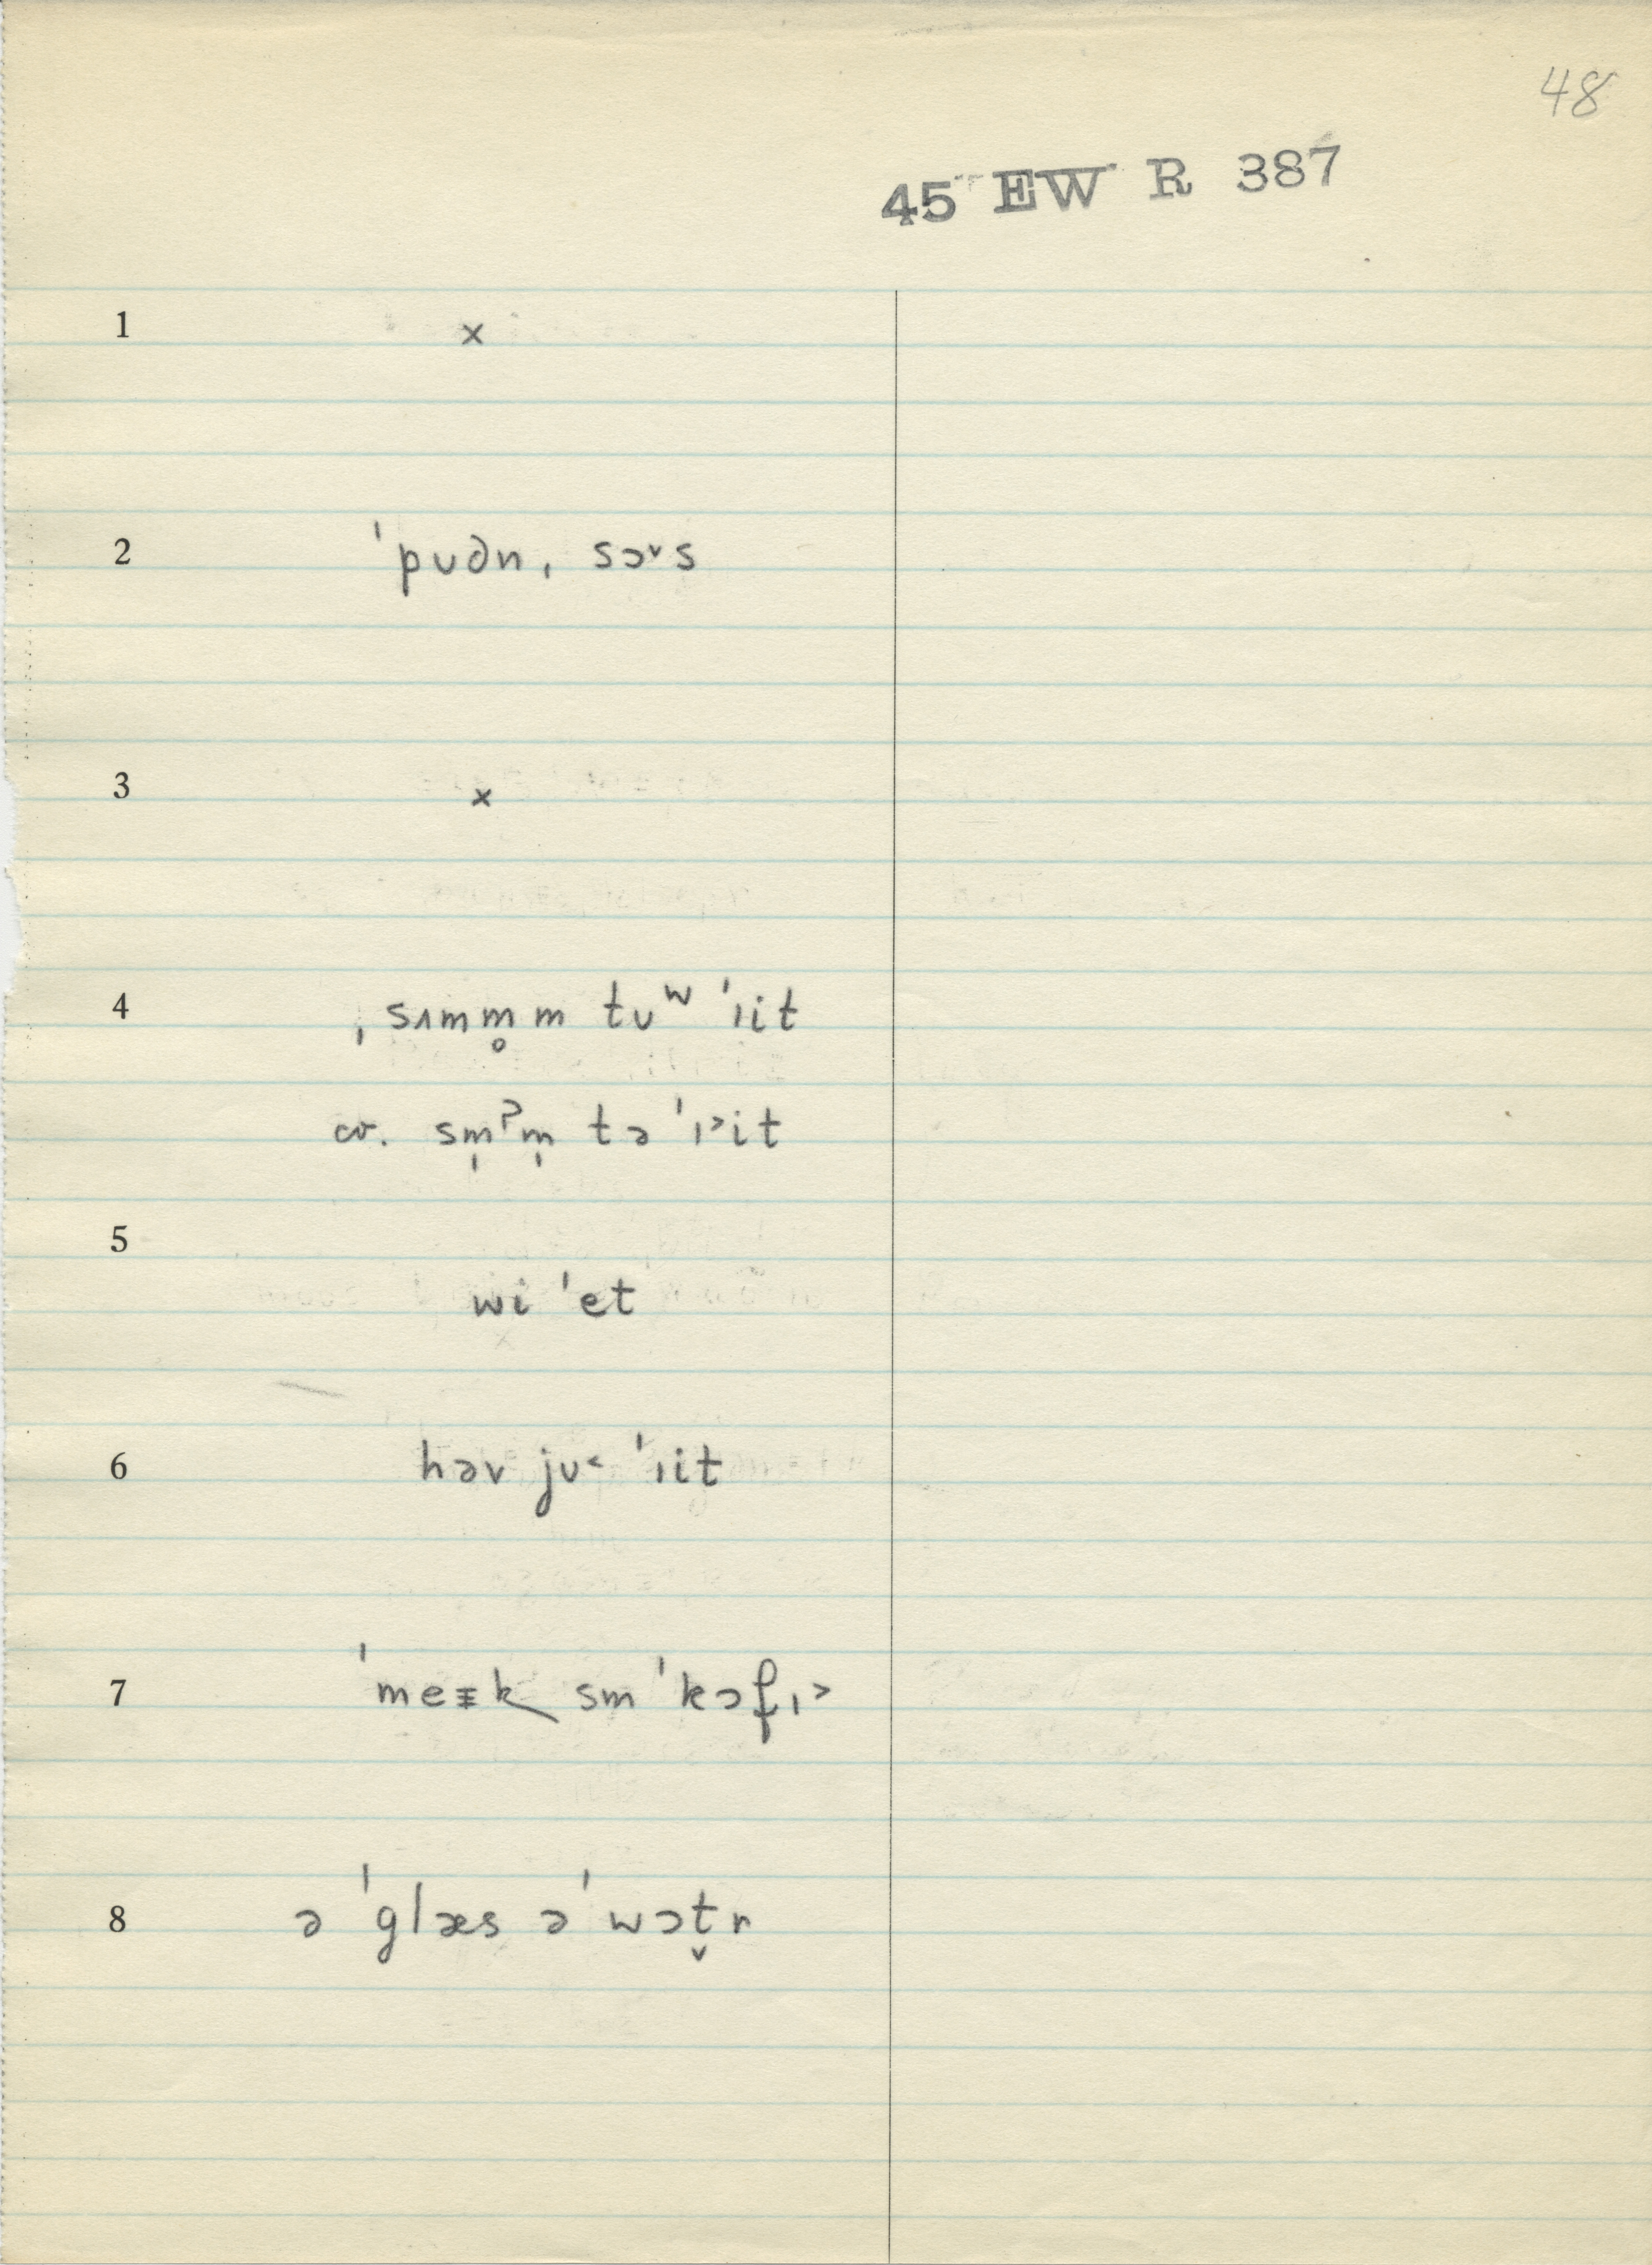 48
45 EW R 387
1 ×
2 ˈpʊdn̩ˌ sɔ˅s
3 ×
4 ˌsʌmm̥m tʊʷ ˈɪit
cr. sm̩ʔm̩ tə ˈɪ˃it
5
wi ˈet
6 həv jʊ˂ ˈɪit
7 ˈmeɪk sm ˈkɔfɪ˃
8 ə ˈglæs ə ˈwɔt̬r